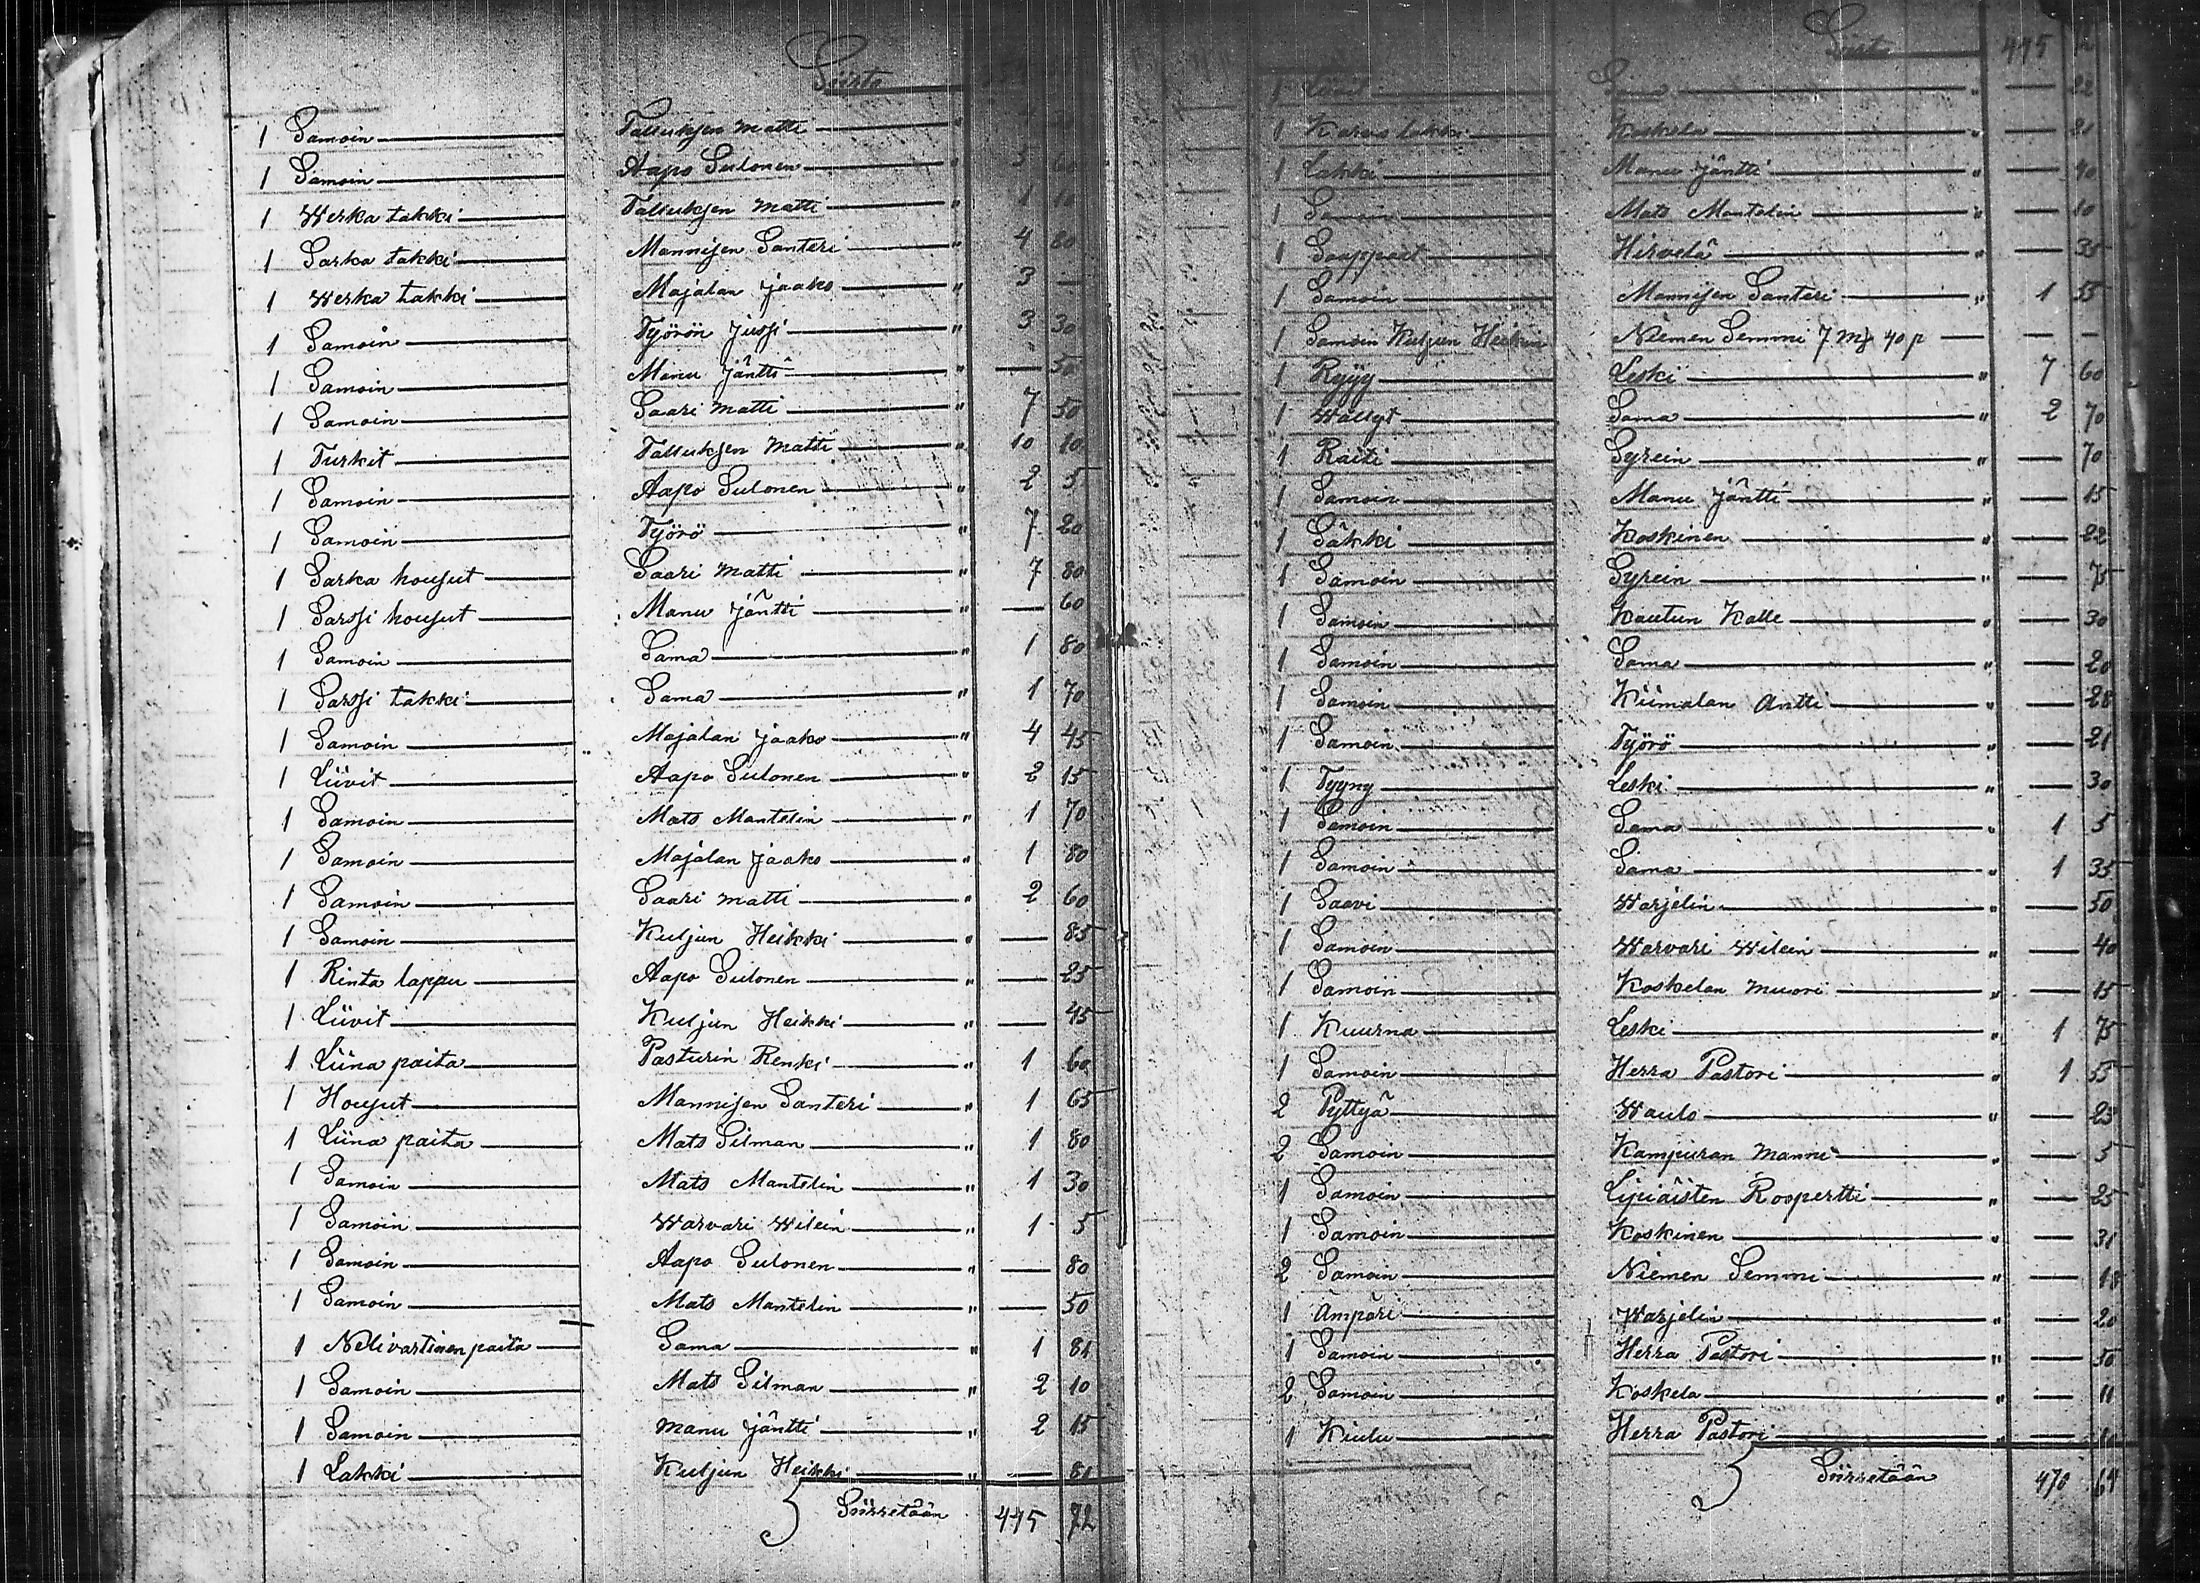 Siirto
1 Samoin Talluksen Matti "
1 Samoin Aapo Sulonen " 3 60
1 Werka takki Talluksen Matti " 1 10
1 Sarka takki Mannisen Santeri " 4 20
1 Werka takki Majalan Jaako " 3 —
1 Samoin Työrön Jussi " 3 30
1 Samoin Manu Jäntti " — 50
1 Samoin Saari Matti " 7 50
1 Turkit Talluksen Matti " 10 10
1 Samoin Aapo Sulonen " 2 5
1 Samoin Työrö " 7 20
1 Sarka housut Saari Matti " 7 80
1 Sarssi housut Manu Jäntti " — 60
1 Samoin Sama " 1 80
1 Sarssi takki Sama " 1 70
1 Samoin Majalan Jaako " 4 45
1 Liivit Aapo Sulonen " 2 15
1 Samoin Mats Mantelin " 1 70
1 Samoin Majalan Jaako " 1 80
1 Samoin Saari Matti " 2 60
1 Samoin Kuljun Heikki " — 85
1 Rinta lappu Aapo Sulonen " — 25
1 Liivit Kuljun Heikki " — 45
1 Liina paita Pasturin Renki " 1 60
1 Housut Mannisen Santeri " 1 65
1 Liina paita Mats Silman " 1 80
1 Samoin Mats Mantelin " 1 30
1 Samoin Warvari Wilein " 1 5
1 Samoin Aapo Sulonen " — 80
1 Samoin Mats Mantelin " — 50
1 Nelivartinen paita Sama " 1 81
1 Samoin Mats Silman " 2 10
1 Samoin Manu Jäntti " 2 15
1 Lakki Kuljun Heikki " — 81
Siirretään 445 72
Siirto 445
1 Sama " — 22
1 Karvas lakki Koskela " — 21
1 Lakki Manu Jäntti " — 40
1 Samoin Mats Mantelin " — 10
1 Saappaat Hirvelä " — 35
1 Samoin Mannisen Santeri " 1 55
1 Samoin Kuljun Heikin Niemen Semmi 7 mk 40 p — — —
1 Ryijy Leski " 7 60
1 Wällyt Sama " 2 70
1 Raiti Syrein " — 70
1 Samoin Manu Jäntti " — 15
1 Säkki Koskinen " — 22
1 Samoin Syrein " — 75
1 Samoin Kautun Kalle " — 30
1 Samoin Sama " — 20
1 Samoin Kiimalan Antti " — 28
1 Samoin Työrö " — 21
1 Tyyny Leski " — 30
1 Samoin Sama " 1 5
1 Samoin Sama " 1 35
1 Saavi Warjelin " — 50
1 Samoin Warvari Wilein " — 40
1 Samoin Koskelan muori " — 15
1 Kuurna Leski " 1 75
1 Samoin Herra Pastori " 1 55
2 Pyttyä Waulo " — 25
2 Samoin Kampuran Manni " — 5
1 Samoin Lijiäisten Roopertti " — 25
1 Samoin Koskinen " — 31
2 Samoin Niemen Semmi " — 18
1 Ämpäri Warjelin " — 20
1 Samoin Herra Pastori " — 50
2 Samoin Koskela " — 11
1 Kiulu Herra Pastori " — 10
Siirretään 470 61